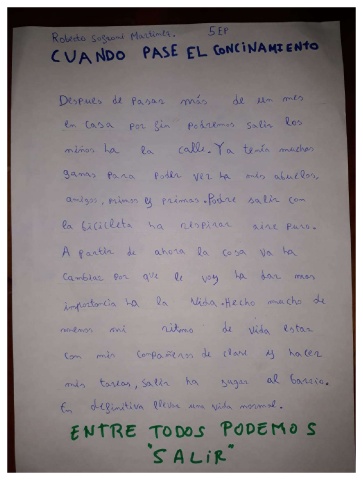 Roberto Soguero Martinez. 5EP
CUANDO PASE EL CONCINAMIENTO
Despues de Pasar más de un mes
en casa por fin podremos salir los
niños ha la calle. Ya tenía muchas
ganas para poder ver ha mis abuelos,
amigos, primos y primas. Podre salir con
la bicicleta ha respirar aire puro.
A partir de ahora la cosa va ha
cambiar por que le voy ha dar mas
importancia ha la vida. Hecho mucho de
menos mi ritmo de vida estar
con mis compañeros de clase y hacer
mis tareas, salir ha jugar al barrio.
En definitiva llevar una vida normal.
ENTRE TODOS PODEMOS
"SALIR"